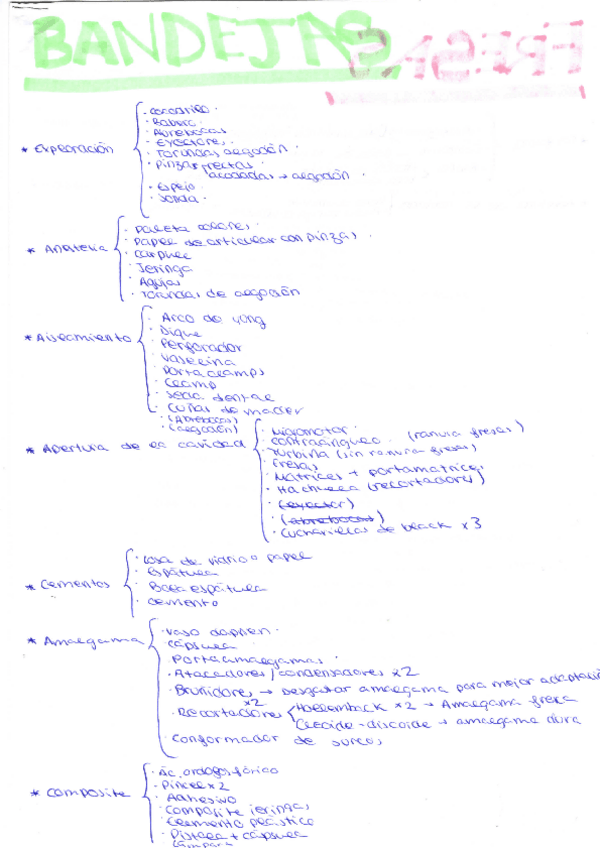 BANDEJAS
FRESAS
* Exploración
· cocodrilo
· Babero
· Abrebocas
· Eyectores
· Torundas algodón
· Pinzas rectas
acodadas → algodón
· Espejo
· Sonda
* Anestesia
· Paleta colores
· Papel de articular con pinzas
· Carpule
· Jeringa
· Agujas
· Torundas de algodón
* Aislamiento
· Arco de yong
· Dique
· Perforador
· Vaselina
· Portaclamps
· Clamp
· Seda dental
· Cuñas de mader
· (Abrebocas)
· (algodón)
* Apertura de la cavidad
· Micromotor
· contraángulo (ranura fresas)
· Turbina (sin ranura fresas)
· Fresas
· Matrices + portamatrices
· Hachuela (recortadores)
· (eyector)
· (abrebocas)
· Cucharillas de black x3
* Cementos
· Losa de vidrio o papel
· Espátula
· Bola espátula
· cemento
* Amalgama
· Vaso dappen
· cápsula
· Portaamalgamas
· Atacadores / condensadores x2
· Bruñidores → desgastar amalgama para mejor adaptació
· Recortadores x2
Hollemback x2 → Amalgama fresca
Cleoide-discoide → amalgama dura
· Conformador de surcos
* Composite
· Ác. ortofosfórico
· Pincel x2
· Adhesivo
· Composite jeringas
· Instrumento plástico
· Pistola + cápsula
· Lámpara